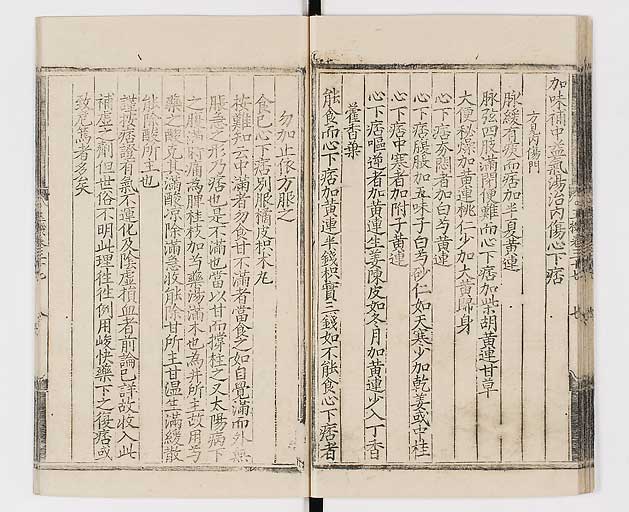 加味補中益氣湯治內傷心下痞
方見內傷門
脉緩有痰而痞加半夏黃連
脉弦四肢滿閉便難而心下痞加柴胡黃連甘草
大便秘燥加黃連桃仁少加大黃歸身
心下痞夯悶者加白芍黃連
心下痞腹脹加五味子白芍砂仁如天寒少加乾姜或中桂
心下痞中寒者加附子黃連
心下痞嘔逆者加黃連生姜陳皮如冬月加黃連少入丁香
藿香葉
能食而心下痞加黃連半錢枳實三錢如不能食心下痞者
勿加止依方服之
食已心下痞別服橘皮枳朮丸
按難知云中滿者勿食甘不滿者當食之如自覺滿而外無
脹急之形乃痞也是不滿也當以甘而撐柱之又太陽病下
之腹滿時痛為脾桂枝加芍藥湯滿本也為井所主故用芍
藥之酸克中滿酸凉除滿急收能除甘所主甘溫生滿緩散
能除酸所主也
謹按痞證有氣不運化及除虛損血者前論已詳故收入此
補虛之劑但世俗不明此理徃徃例用峻快藥下之後痞或
致危篤者多矣